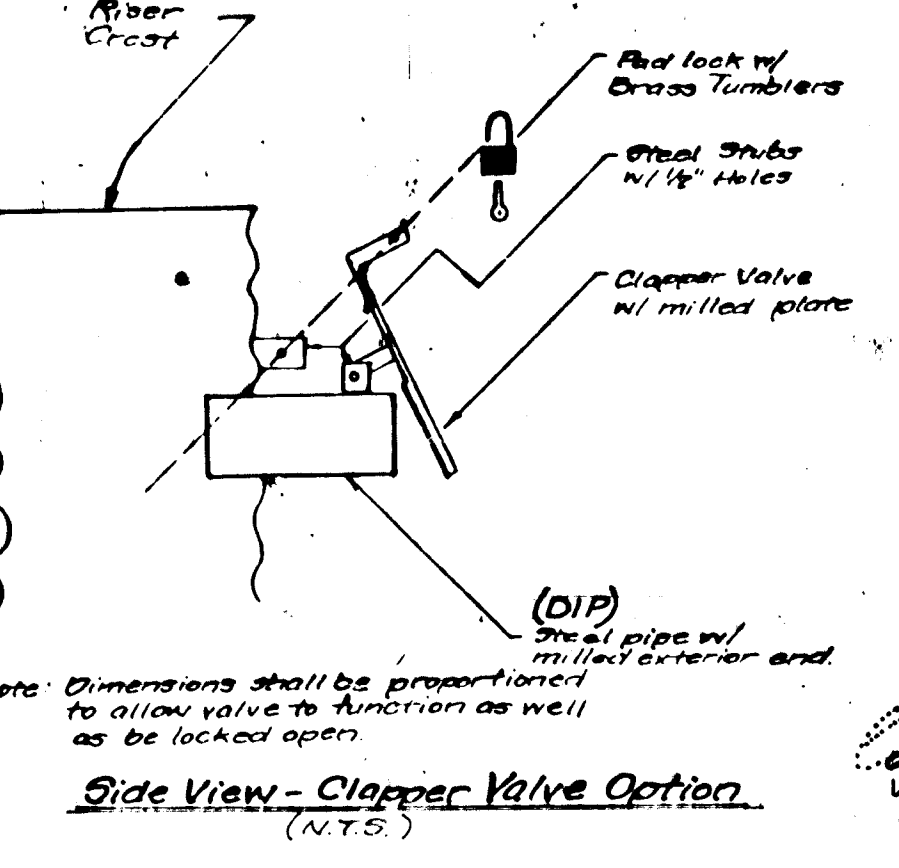 Riser
Crest
Pad lock w/
Brass Tumblers
Steel Stubs
w/ 1/2" Holes
Clapper Valve
w/ milled plate
(DIP)
Steel pipe w/
milled exterior end.
ote: Dimensions shall be proportioned
to allow valve to function as well
as be locked open.
Side View - Clapper Valve Option
(N.T.S.)